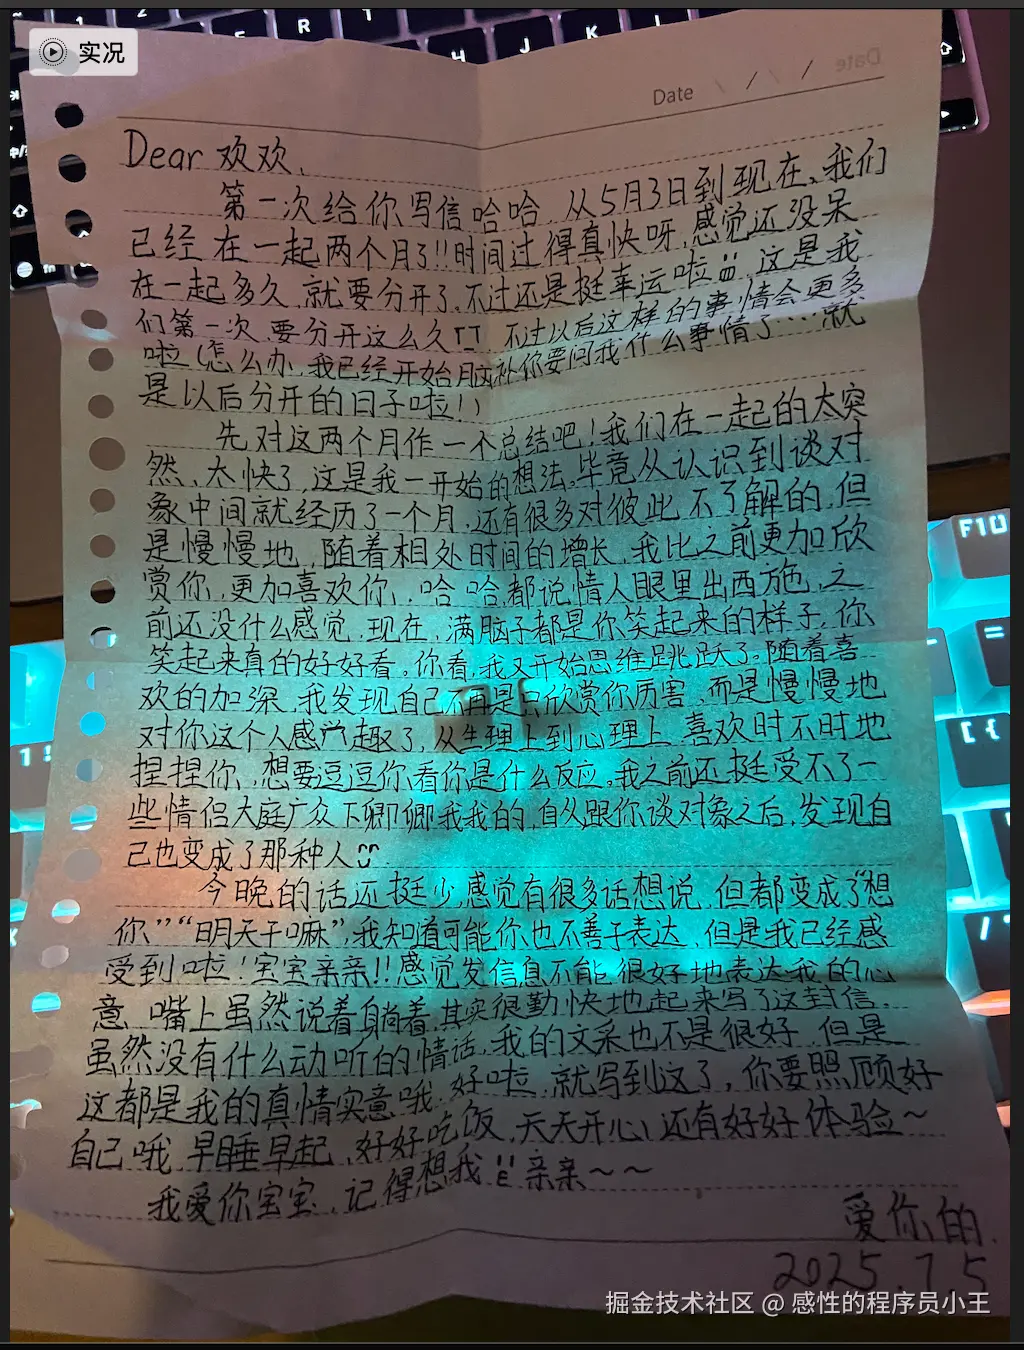 实况
Date / /
Dear 欢欢、
第一次给你写信哈哈，从5月3日到现在，我们
已经在一起两个月了!!时间过得真快呀，感觉还没呆
在一起多久，就要分开了，不过还是挺幸运啦 这是我
们第一次要分开这么久TT 不过以后这样的事情会更多
啦（怎么办，我已经开始脑补你要问我什么事情了……就
是以后分开的日子啦！）
先对这两个月作一个总结吧！我们在一起的太突
然、太快了，这是我一开始的想法，毕竟从认识到谈对
象中间就经历了一个月，还有很多对彼此不了解的，但
是慢慢地，随着相处时间的增长，我比之前更加欣
赏你，更加喜欢你，哈哈，都说情人眼里出西施，之
前还没什么感觉，现在，满脑子都是你笑起来的样子，你
笑起来真的好好看。你看，我又开始思维跳跃了。随着喜
欢的加深，我发现自己不再是只欣赏你厉害，而是慢慢地
对你这个人感兴趣了，从生理上到心理上，喜欢时不时地
捏捏你，想要逗逗你，看你是什么反应。我之前还挺受不了一
些情侣大庭广众下卿卿我我的，自从跟你谈对象之后，发现自
己也变成了那种人
今晚的话还挺少，感觉有很多话想说，但都变成了“想
你”“明天干嘛”，我知道可能你也不善于表达，但是我已经感
受到啦！宝宝亲亲!!感觉发信息不能很好地表达我的心
意，嘴上虽然说着躺着，其实很勤快地起来写了这封信，
虽然没有什么动听的情话，我的文采也不是很好，但是
这都是我的真情实意哦，好啦，就写到这了，你要照顾好
自己哦，早睡早起，好好吃饭，天天开心，还有好好体验~
我爱你宝宝，记得想我 亲亲~~
爱你的
2025.7.5
掘金技术社区 @ 感性的程序员小王
E
R
T
H
J
K
F10
=
[ {
1 !
/